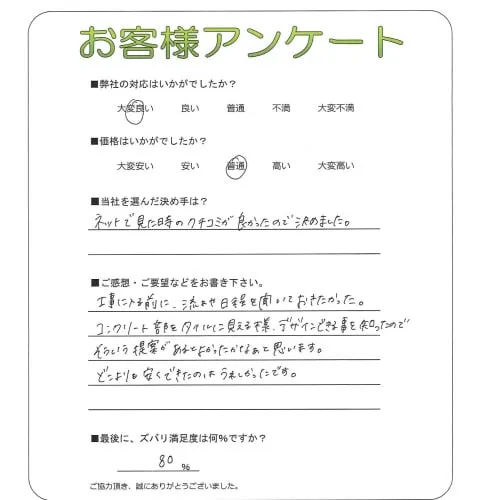 お客様アンケート
■弊社の対応はいかがでしたか？
大変良い 良い 普通 不満 大変不満
■価格はいかがでしたか？
大変安い 安い 普通 高い 大変高い
■当社を選んだ決め手は？
ネットで見た時のクチコミが良かったので決めました。
■ご感想・ご要望などをお書き下さい。
工事に入る前に、流れや日程を聞いておきたかった。
コンクリート部をタイルに見える様、デザインできる事を知ったので
そういう提案があるとよかったかなぁと思います。
どこよりも安くできたのはうれしかったです。
■最後に、ズバリ満足度は何％ですか？
80 ％
ご協力頂き、誠にありがとうございました。